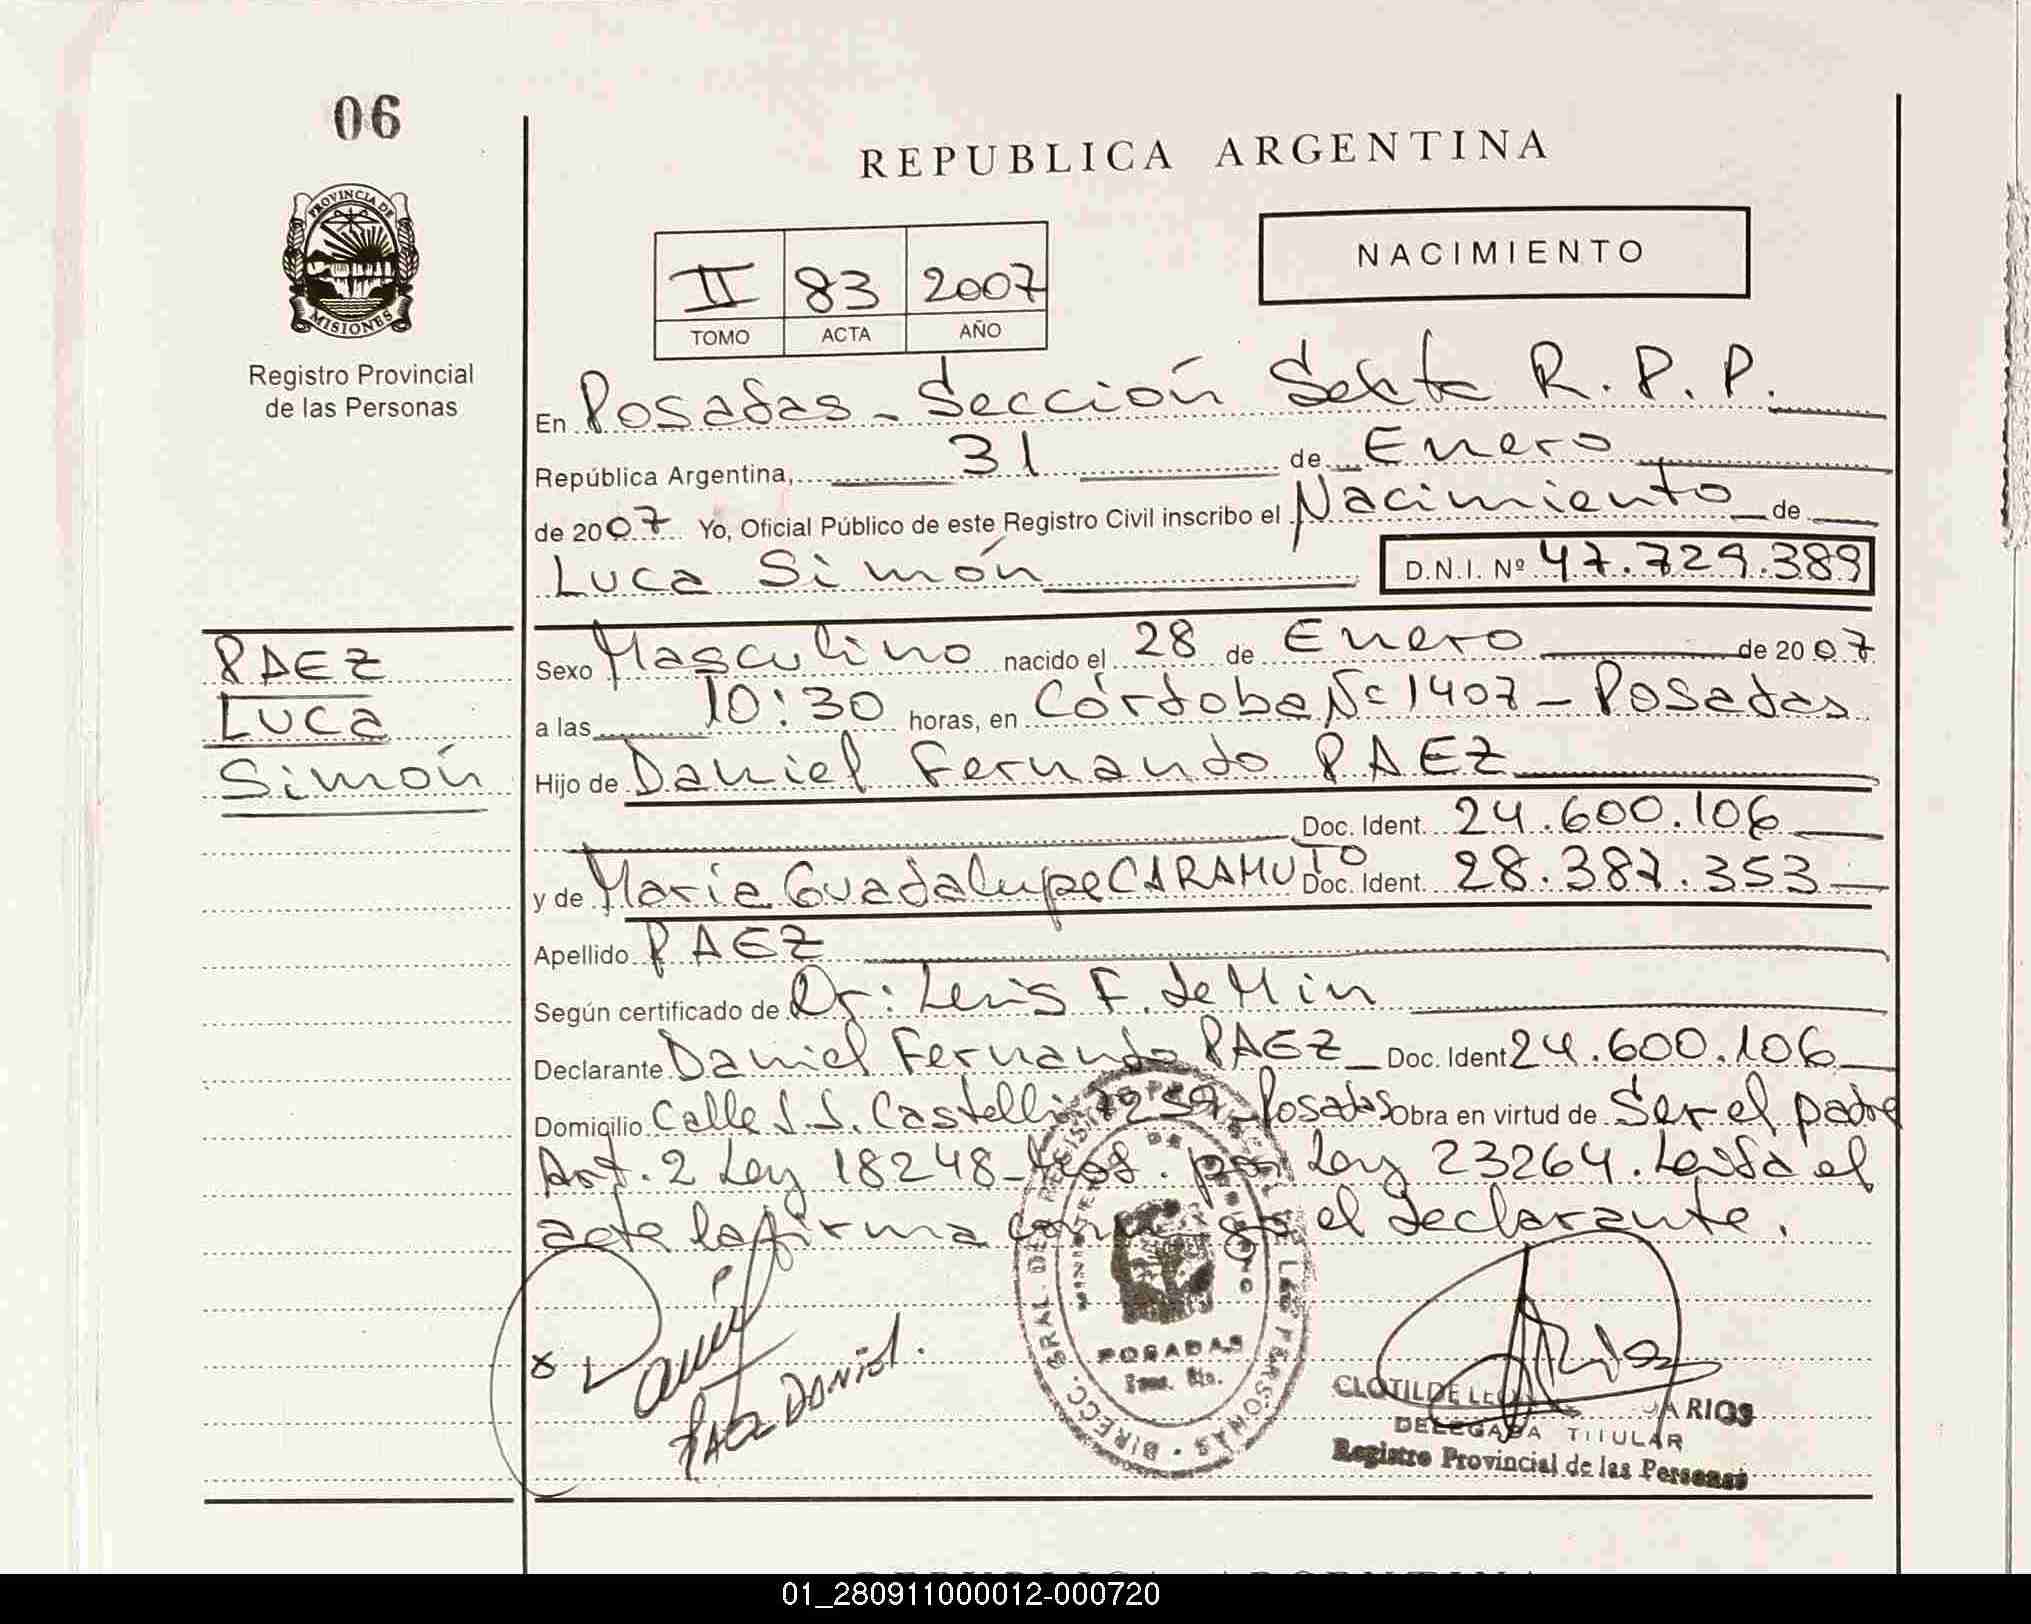 06
REPUBLICA ARGENTINA
PROVINCIA DE
MISIONES
Registro Provincial
de las Personas
NACIMIENTO
II 83 2007
TOMO ACTA AÑO
En Posadas - Sección Sexta R.P.P.
República Argentina, 31 de Enero
de 2007 Yo, Oficial Público de este Registro Civil inscribo el Nacimiento de
Luca Simón D.N.I. Nº 47.729.389
PAEZ
Luca
Simón
Sexo Masculino nacido el 28 de Enero de 2007
a las 10:30 horas, en Córdoba Nº 1407 - Posadas
Hijo de Daniel Fernando PAEZ
Doc. Ident. 24.600.106
y de María Guadalupe CARAMUTO Doc. Ident. 28.387.353
Apellido PAEZ
Según certificado de Dr: Luis F. de Min
Declarante Daniel Fernando PAEZ Doc. Ident 24.600.106
Domicilio Calle J.J. Castelli Posadas Obra en virtud de Ser el padre
Art. 2 Ley 18248 - por Ley 23264. Leída el
acta la firma el declarante.
PAEZ DANIEL.
DIRECC. GRAL. DEL REGISTRO PROVINCIAL DE LAS PERSONAS
MINISTERIO DE GOBIERNO
POSADAS
CLOTILDE
DELEGADA TITULAR
Registro Provincial de las Personas
REPUBLICA ARGENTINA
01_280911000012-000720